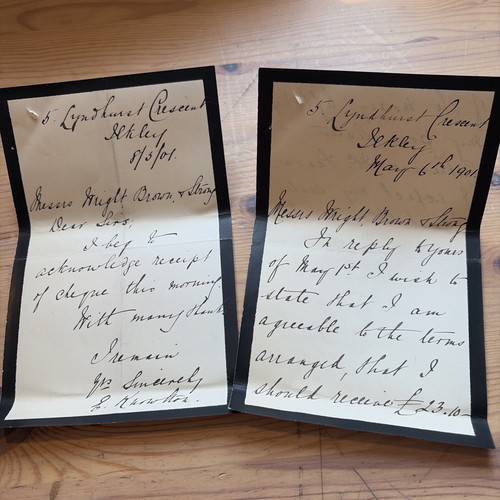 5 Lyndhurst Crescent
Ilkley
8/5/01.
Messrs Wright Brown, & Strong
Dear Sirs,
I beg to
acknowledge receipt
of cheque this morning
With many thanks
I remain
Yrs Sincerely
E. Knowlton.
5 Lyndhurst Crescent
Ilkley
May 6th 1901
Messrs Wright, Brown & Strong
In reply to yours
of May 1st I wish to
state that I am
agreeable to the terms
arranged, that I
should receive £23.10